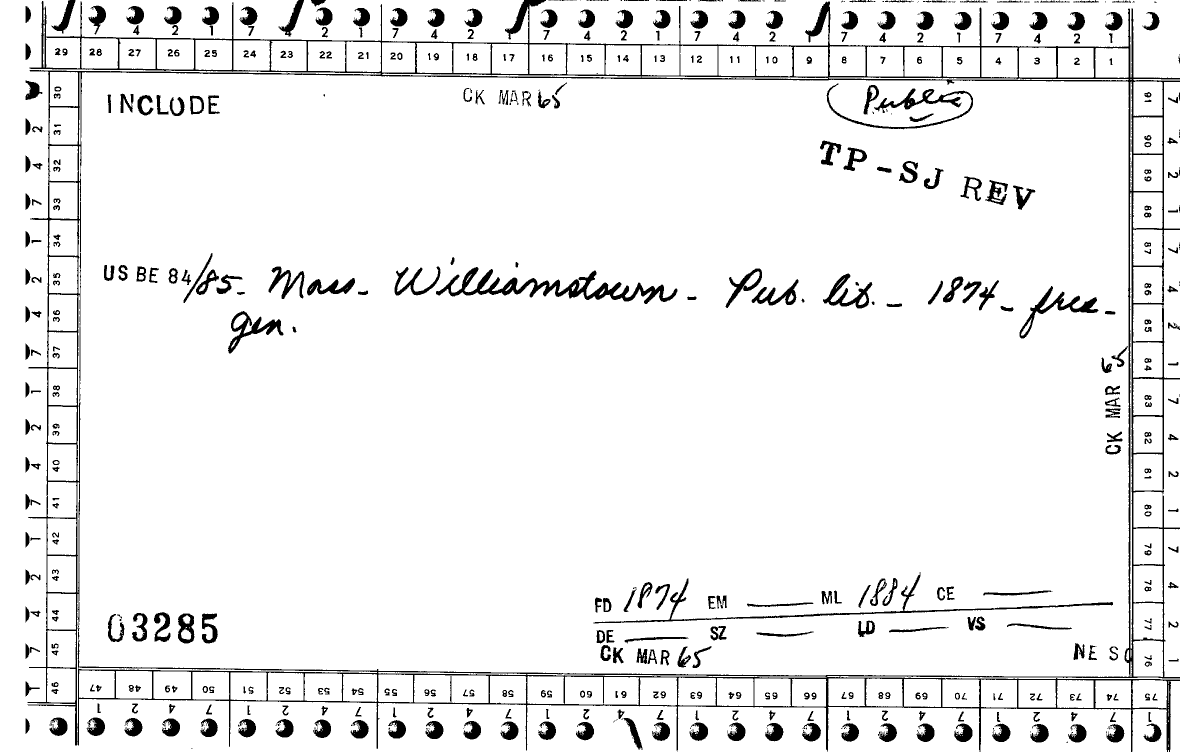 7 4 2 1 7 4 2 1 7 4 2 1 7 4 2 1 7 4 2 1 7 4 2 1 7 4 2 1
29 28 27 26 25 24 23 22 21 20 19 18 17 16 15 14 13 12 11 10 9 8 7 6 5 4 3 2 1
INCLUDE
CK MAR 65
Public
TP-SJ REV
US BE 84/85- Mass- Williamstown - Pub. lib. - 1874 - free-
gen.
CK MAR 65
FD 1874 EM ML 1884 CE
DE SZ LD VS
03285
CK MAR 65
NE SO
30 31 32 33 34 35 36 37 38 39 40 41 42 43 44 45 46
91 90 89 88 87 86 85 84 83 82 81 80 79 78 77 76 75
47 48 49 50 51 52 53 54 55 56 57 58 59 60 61 62 63 64 65 66 67 68 69 70 71 72 73 74 75
1 2 4 7 1 2 4 7 1 2 4 7 1 2 4 7 1 2 4 7 1 2 4 7 1 2 4 7 1